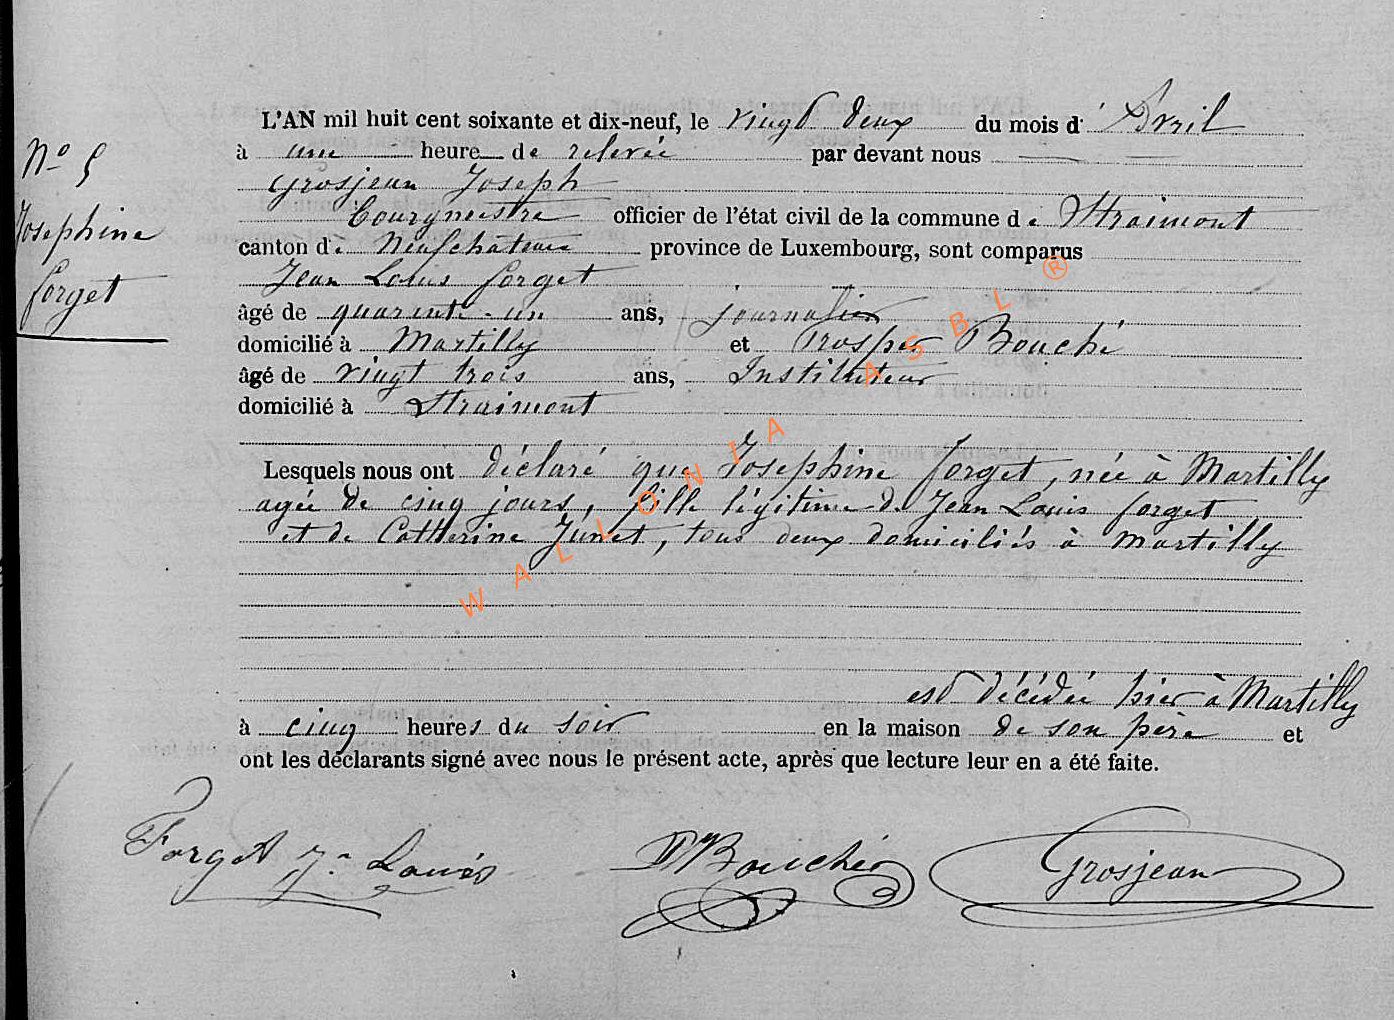 N° 5
Josephine
forget
L'AN mil huit cent soixante et dix-neuf, le vingt deux du mois d' Avril
à une heure de relevée par devant nous
Grosjean Joseph
Bourgmestre officier de l'état civil de la commune de Straimont
canton de Neufchâteau province de Luxembourg, sont comparus
Jean Louis forget
âgé de quarante-un ans, journalier
domicilié à Martilly et Prosper Bouché
âgé de vingt trois ans, Instituteur
domicilié à Straimont
Lesquels nous ont déclaré que Josephine forget, née à Martilly
agée de cinq jours, fille légitime de Jean Louis forget
et de Catherine Junet, tous deux domiciliés à Martilly
est décédée hier à Martilly
à cinq heures du soir en la maison de son père et
ont les déclarants signé avec nous le présent acte, après que lecture leur en a été faite.
Forget J. Louis PBouché Grosjean
WALLONIA ASBL ®